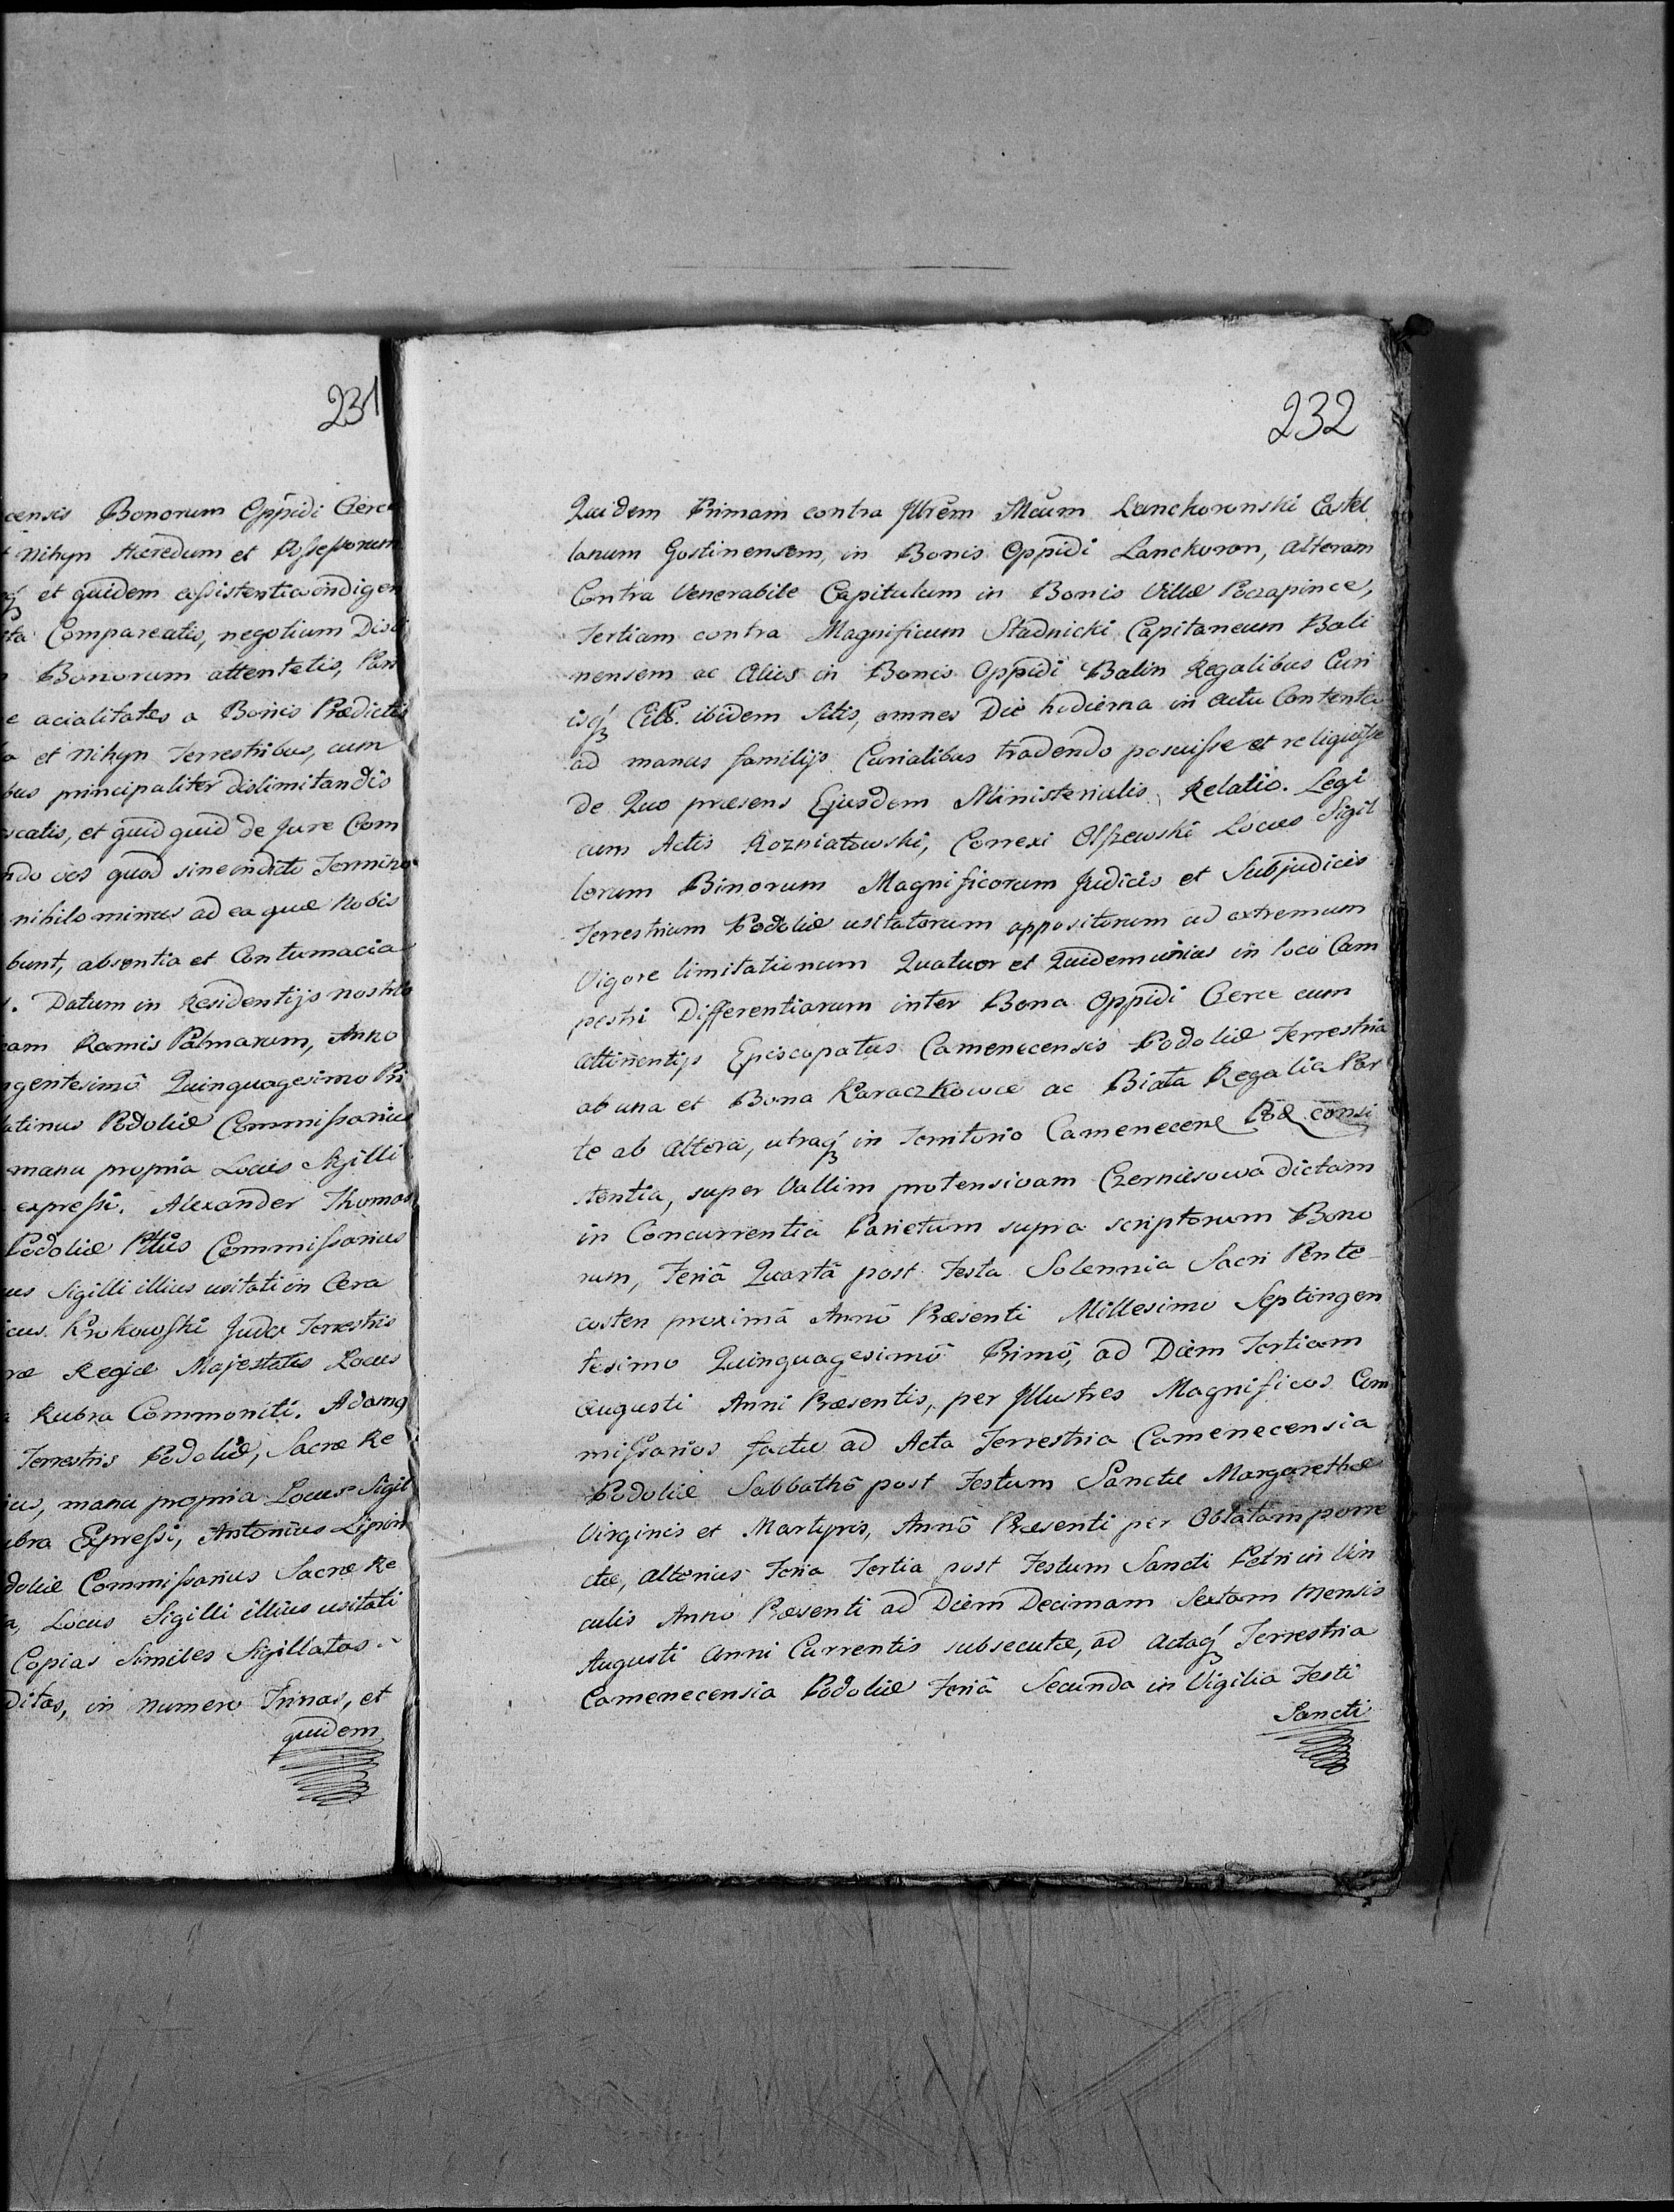 231
censis Bonorum Oppidi Cierce
Nihyn Haeredum et Possessorum
et quidem assistentia indigen
Compareatis, negotium Disli
Bonorum attentetis, Pari
acialitates a Bonis Praedictis
et Nihyn Terrestribus, cum
bus principaliter dislimitandis
scatis, et quid quid de Jure Com
ndo vos quod sive in dicto Termino
nihilo minus ad ea quae Nobis
bunt, absentia et Contumacia
. Datum in Residentijs nostris
cam Ramis Palmarum, Anno
ngentesimô Quinquagesimo Pri
latinus Podoliae Commissarius
manu propria Locus Sigilli
expressi. Alexander Thomas
Podoliae Commissarius
us Sigilli illius usitati in Cera
icus Krokowski Judex Terrestris
rae Regiae Majestatis Locus
Rubra Commoniti. Adamg
Terrestris Podoliae, Sacrae Re
ius, manu propria Locus Sigil
ubra Expressi, Antonius Lipin
doliae Commissarius Sacrae Re
a, Locus Sigilli illius usitati
Copias Similes Sigillatas
ditas, in numero Trinas, et
quidem
232
Quidem Primam contra Jllrem Mcum Lanckoronski Castel
lanum Gostinensem, in Bonis Oppidi Lanckoron, alteram
Contra Venerabile Capitulum in Bonis Villae Poczapince,
Tertiam contra Magnificum Stadnicki Capitaneum Bali
nensem ac Alios in Bonis Oppidi Balin Regalibus Curi
isq ibidem Sitis, omnes Die hodierna in actu Contenta
ad manus familijs Curialibus tradendo posuisse et reliquisse
de Quo praesens Ejusdem Ministerialis Relatio. Legi
cum Actis Rozniatowski, Correxi Olszewski Locus Sigil
lorum Binorum Magnificorum Judicis et Subjudicis
Terrestrium Podoliae usitatorum appositorum ad extremum
Vigore limitationum Quatuor et Quidem unius in loco Cam
pestri Differentiarum inter Bona Oppidi Cierce cum
attinentijs Episcopatus Camenecensis Podoliae Terrestria
ab una et Bona Karaczkowce ac Biała Regalia Par
te ab altera, utraq in Territorio Camenecene Pod consi
stentia, super Vallim protensivam Czerniesowa dictam
in Concurrentia Parietum supra scriptorum Bono
rum, Feriâ Quartâ post Festa Solennia Sacri Pente
costen proximâ Annô Praesenti Millesimo Septingen
tesimo Quinquagesimô Primô, ad Diem Tertiam
Augusti Anni Praesentis, per Jllustres Magnificos Com
missarios factae ad Acta Terrestria Camenecensia
Podoliae Sabbathô post Festum Sanctae Margarethae
Virginis et Martyris, Annô Praesenti per Oblatam porre
ctae, alterius Feria Tertia post Festum Sancti Petri in Vin
culis Anno Praesenti ad Diem Decimam Sextam Mensis
Augusti Anni Currentis subsecutae, ad Actaq Terrestria
Camenecensia Podoliae Feriâ Secunda in Vigilia Festi
Sancti